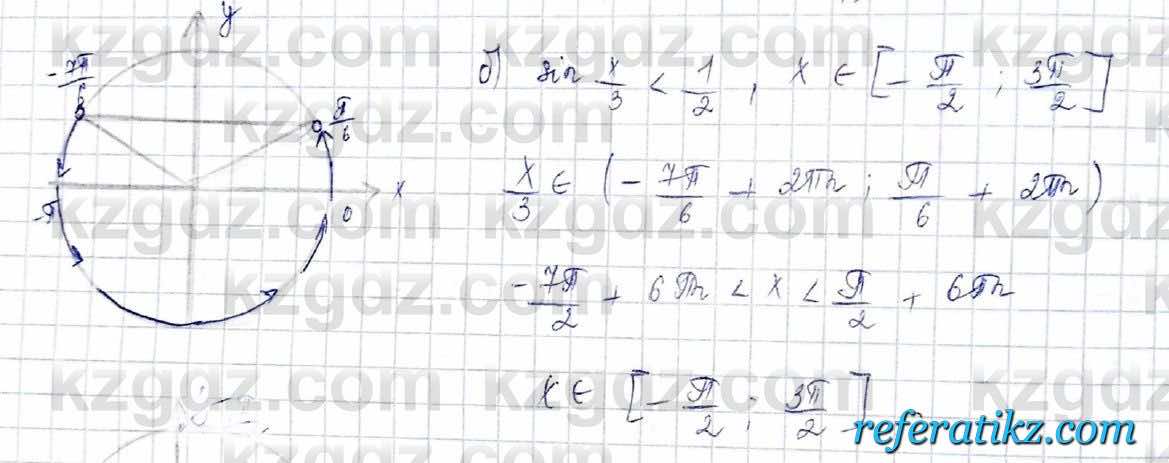 y
-7π/6
π/6
x
-π
0
б) sin x/3 < 1/2 , x ∈ [-π/2 ; 3π/2]
x/3 ∈ (-7π/6 + 2πn ; π/6 + 2πn)
-7π/2 + 6πn < x < π/2 + 6πn
x ∈ [-π/2 ; 3π/2]
kzgdz.com
referatikz.com